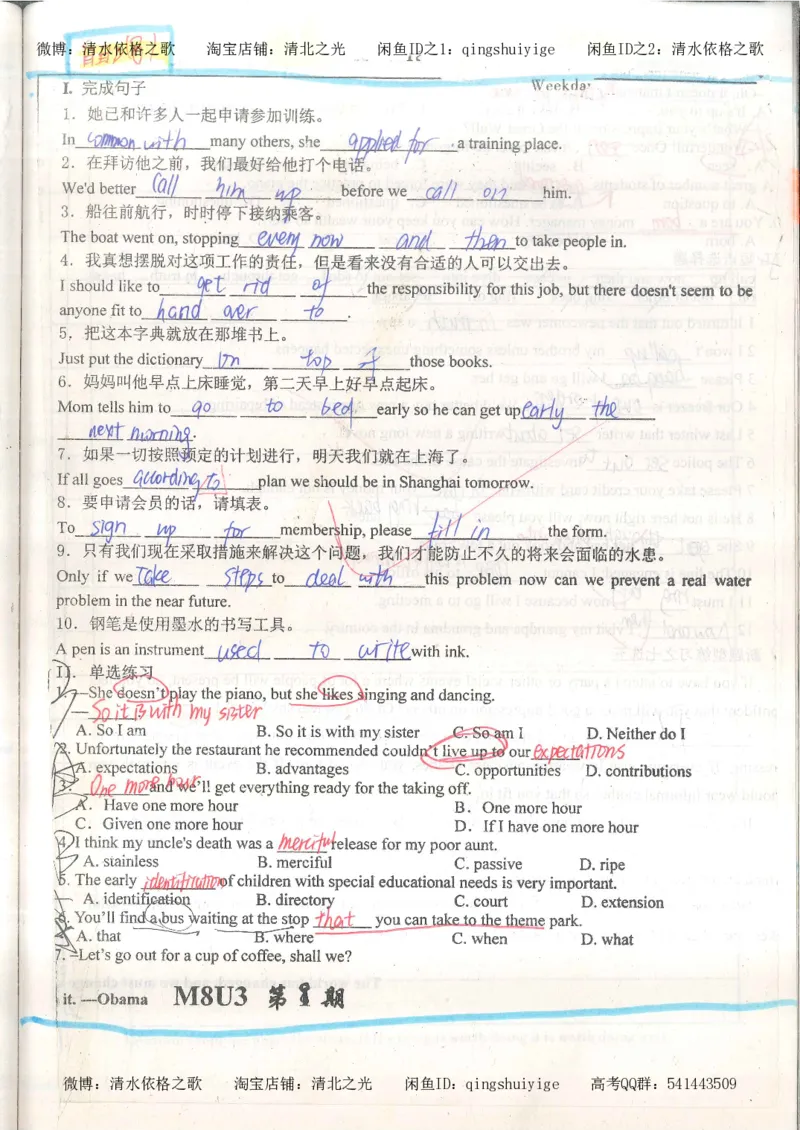 微博：清水依格之歌 淘宝店铺：清北之光 闲鱼ID之1：qingshuiyige 闲鱼ID之2：清水依格之歌
Weekday
I. 完成句子
1．她已和许多人一起申请参加训练。
In common with many others, she applied for a training place.
2．在拜访他之前，我们最好给他打个电话。
We'd better call him up before we call on him.
3．船往前航行，时时停下接纳乘客。
The boat went on, stopping every now and then to take people in.
4．我真想摆脱对这项工作的责任，但是看来没有合适的人可以交出去。
I should like to get rid of the responsibility for this job, but there doesn't seem to be
anyone fit to hand over to.
5．把这本字典就放在那堆书上。
Just put the dictionary on top of those books.
6．妈妈叫他早点上床睡觉，第二天早上好早点起床。
Mom tells him to go to bed early so he can get up early the
next morning.
7．如果一切按照预定的计划进行，明天我们就在上海了。
If all goes according to plan we should be in Shanghai tomorrow.
8．要申请会员的话，请填表。
To sign up for membership, please fill in the form.
9．只有我们现在采取措施来解决这个问题，我们才能防止不久的将来会面临的水患。
Only if we take steps to deal with this problem now can we prevent a real water
problem in the near future.
10．钢笔是使用墨水的书写工具。
A pen is an instrument used to write with ink.
II．单选练习
1. —She doesn't play the piano, but she likes singing and dancing.
—So it is with my sister
A. So I am B. So it is with my sister C. So am I D. Neither do I
2. Unfortunately the restaurant he recommended couldn't live up to our expectations
A. expectations B. advantages C. opportunities D. contributions
3. One more hour and we'll get everything ready for the taking off.
A．Have one more hour B．One more hour
C．Given one more hour D．If I have one more hour
4. I think my uncle's death was a merciful release for my poor aunt.
A. stainless B. merciful C. passive D. ripe
5. The early identification of children with special educational needs is very important.
A. identification B. directory C. court D. extension
6. You'll find a bus waiting at the stop that you can take to the theme park.
A. that B. where C. when D. what
7. –Let's go out for a cup of coffee, shall we?
it. —Obama M8U3 第1期
微博：清水依格之歌 淘宝店铺：清北之光 闲鱼ID：qingshuiyige 高考QQ群：541443509